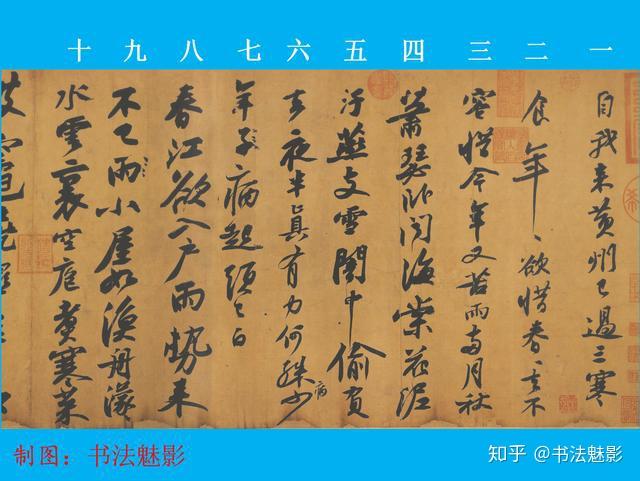 十 九 八 七 六 五 四 三 二 一
自我来黄州已過三寒
食年〻欲惜春〻去不
容惜今年又苦雨兩月秋
蕭瑟卧聞海棠花泥
汙燕支雪闇中偷負
去夜半真有力何殊少
病
年子病起頭已白
春江欲入户雨勢来
不已雨小屋如漁舟濛〻
水雲裏空庖煮寒菜
制图：书法魅影
知乎 @书法魅影